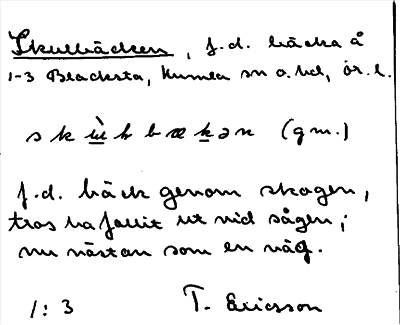 Skulbäcken, f.d. bäcka å
1-3 Blacksta, Kumla sn o. hd, ör. l.
s k ù l b æ k ə n (gm.)
f.d. bäck genom skogen,
tros ha fallit ut vid sågen;
nu nästan som en väg.
1:3 T. Ericsson